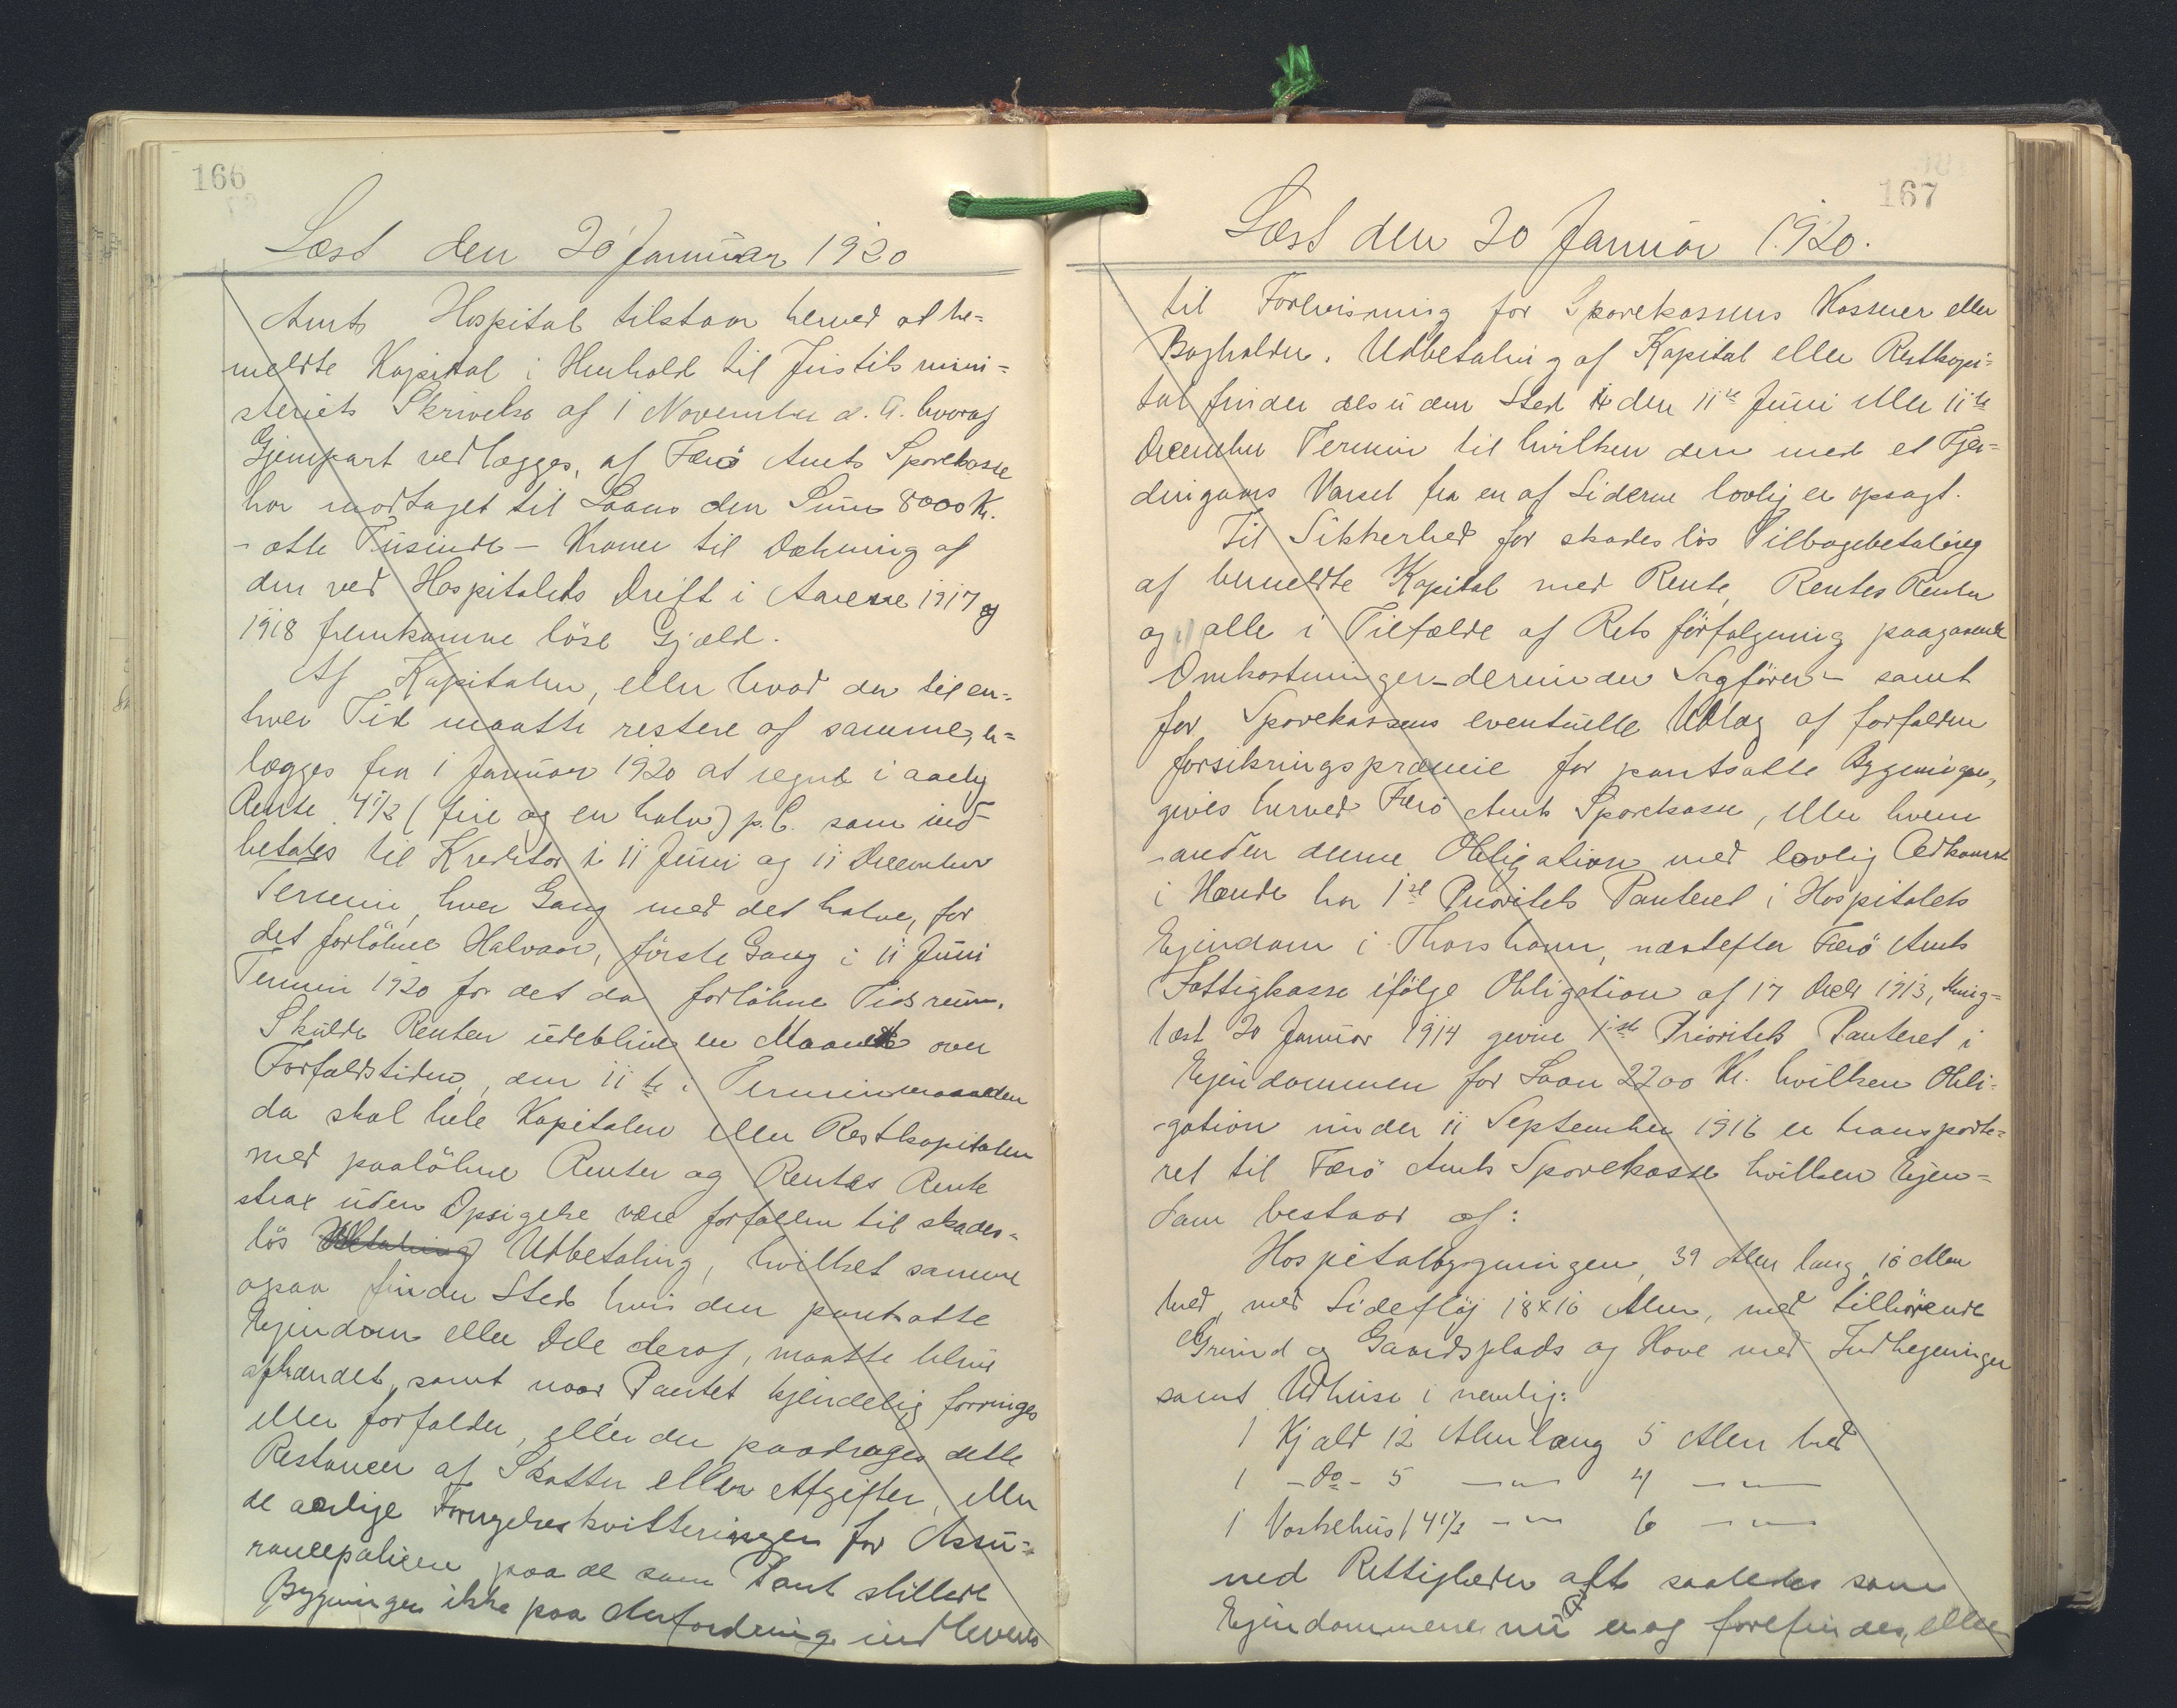 166
Læst den 20 Januar 1920
Amts Hospital tilstaar herved at be=
meldte Kapital i Henhold til Justitsmini=
steriets Skrivelse af 1 November d. A. hvoraf
Gjenpart vedlægges, af Færö Amts Sparekasse
har modtaget til Laans den Sum 8000 Kr.
- otte Tusinde - Kroner til Dækning af
den ved Hospitalets Drift i Aarene 1917 og
1918 fremkomne löse Gjæld.
Af Kapitalen, eller hvad der til en-
hver Tid maatte restere af samme, er=
lægges fra 1 Januar 1920 at regne i aarlig
Rente 4½ (fire og en halv) p.C. som ind-
betales til Kreditor i 11 Juni og 11 December
Termin, hver Gang med det halve, for
det forlöbne Halvaar, förste Gang i 11 Juni
Termin 1920 for det da forlöbne Tidsrum.
Skulde Renten udeblive en Maaned over
Forfaldstiden, den 11te i Terminsmaaneden
da skal hele Kapitalen eller Restkapitalen
med paalöbne Renter og Rentes Rente
strax uden Opsigelse være forfalden til skades-
lös Udbetaling, hvilket samme
ogsaa finder Sted hvis den pantsatte
Ejendom eller Dele deraf, maatte blive
afhændet, samt naar Pantet kjendelig forringes
eller forfalder, eller der paadrages dette
Restancer af Skatter eller Afgifter, eller
de aarlige Fornyelseskvitteringer for Assu-
rancepolicen paa de som Pant stillede
Bygninger ikke paa Anfordring indleveres
167
Læst den 20 Januar 1920.
til Forevisning for Sparekassens Kasserer eller
Bogholder. Udbetaling af Kapital eller Restkapi-
tal finder desuden Sted i den 11te Juni eller 11te
December Termin til hvilken den med et Fjer-
dingaars Varsel fra en af Siderne lovlig er opsagt.
Til Sikkerhed for skadeslös Tilbagebetaling
af bemeldte Kapital med Rente, Rentes Renter
og alle i Tilfælde af Retsforfölgning paagaaende
Omkostninger - derunder Sagförer - samt
for Sparekassens eventuelle Udlæg af forfalden
Forsikringspræmie for pantsatte Bygninger,
gives herved Færö Amts Sparekasse, eller hvem
anden denne Obligation med lovlig Adkomst
i Hænde har 1ste Prioritets Panteret i Hospitalets
Ejendom i Thorshavn, næstefter Færö Amts
Fattigkasse ifölge Obligation af 17 Decbr 1913, thing-
læst 20 Januar 1914 given 1ste Prioritets Panteret i
Ejendommen for Laan 2200 Kr. hvilken Obli-
-gation under 11 September 1916 er transporte=
ret til Færö Amts Sparekasse hvilken Ejen=
dom bestaar af:
Hospitalbygningen, 39 Alen lang, 16 Alen
bred, med Sideflöj 18x10 Alen, med tilhörende
Grund og Gaardsplads og Have med Indhegninger
samt Udhuse i nemlig:
1 Kjæld 12 Alen lang 5 Alen bred
1 - do - 5 -"- 4 -"-
1 Vaskehus 14½ -"- 6 -"-
med Rettigheder alt saaledes som
Ejendommene nu er og forefindes, eller